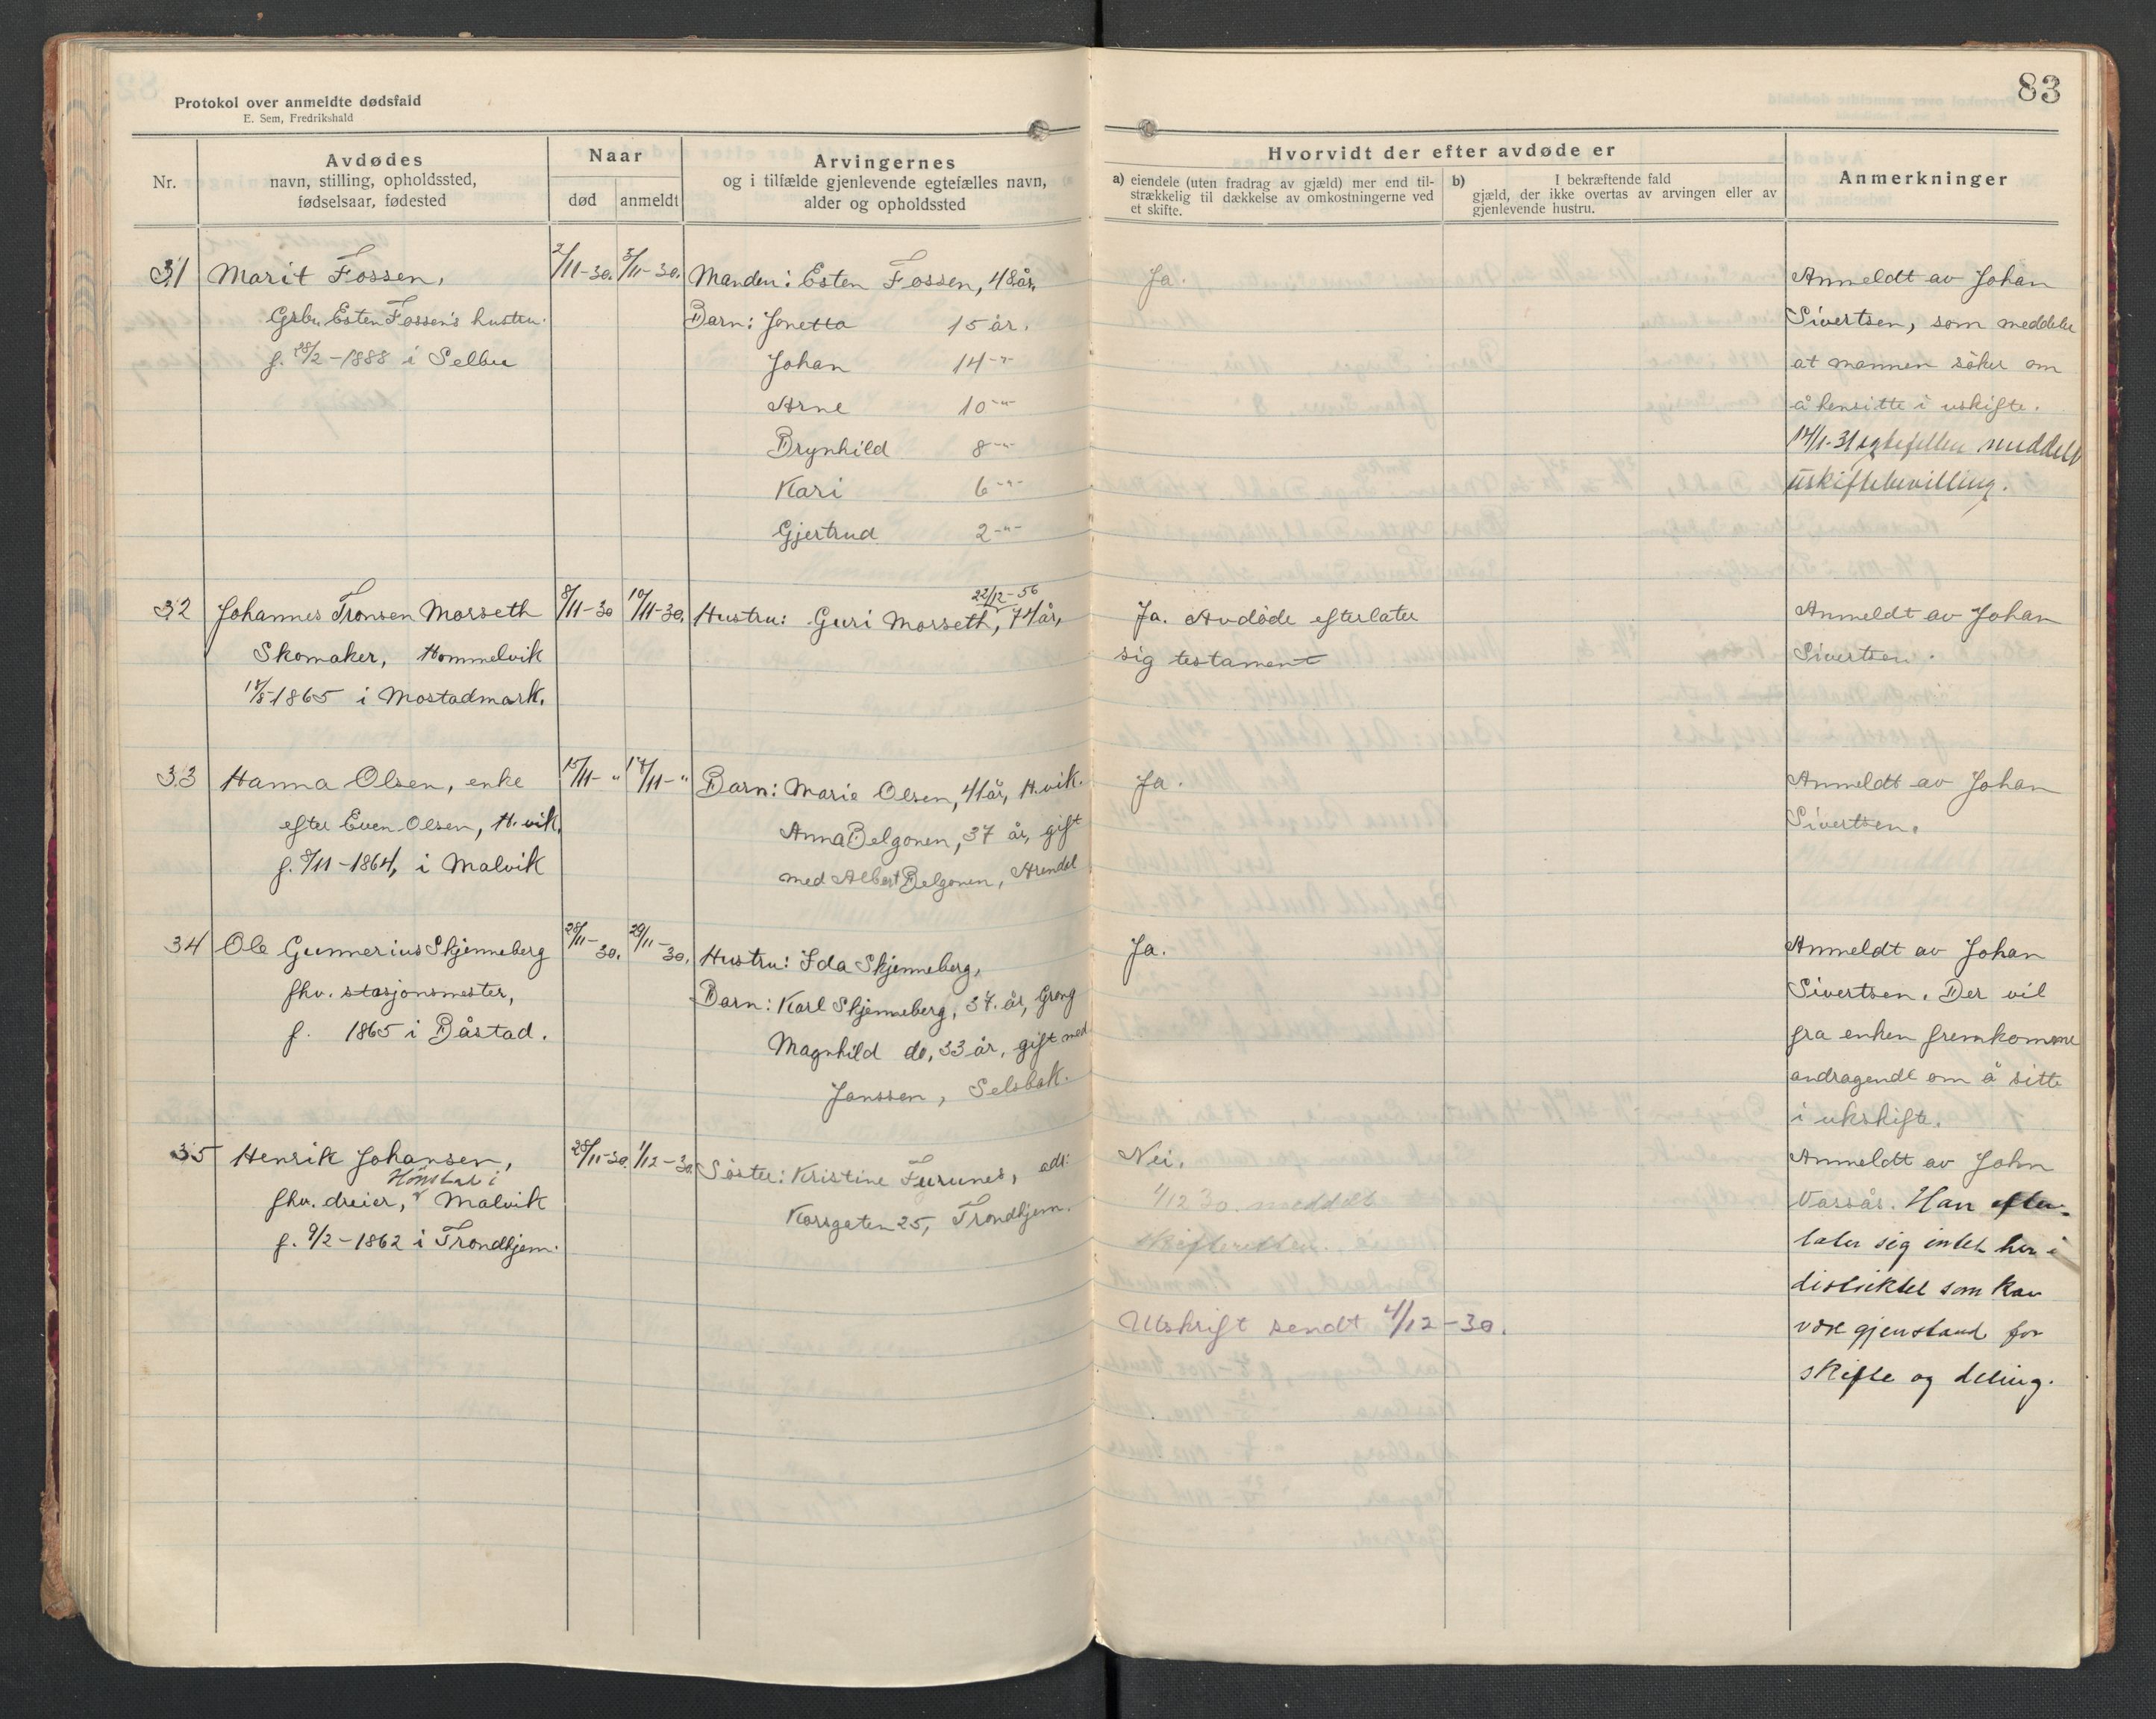 83
Protokol over anmeldte dødsfald
E. Sem, Fredrikshald
Nr.
Avdødes
navn, stilling, opholdssted,
fødselsaar, fødested
Naar
død
anmeldt
Arvingernes
og i tilfælde gjenlevende egtefælles navn,
alder og opholdssted
Hvorvidt der efter avdøde er
a) eiendele (uten fradrag av gjæld) mer end til-
strækkelig til dækkelse av omkostningerne ved
et skifte.
b) I bekræftende fald
gjæld, der ikke overtas av arvingen eller av
gjenlevende hustru.
Anmerkninger
31
Marit Fossen,
Grbr. Esten Fossen's hustru.
f. 28/2-1888 i Selbu
2/11-30.
3/11-30.
Manden: Esten Fossen, 48 år,
Barn: Jonetta 15 år.
Johan 14 -"-
Arne 10 -"-
Brynhild 8 -"-
Kari 6 -"-
Gjertrud 2 -"-
Ja.
Anmeldt av Johan
Sivertsen, som meddeler
at mannen søker om
å hensitte i uskifte.
14/1-31 egtefellen meddelt
uskiftebevilling.
32
Johannes Tronsen Morseth
Skomaker, Hommelvik
18/5-1865 i Mostadmark.
8/11-30
10/11-30.
22/12-56
Hustru: Guri Morseth, 74 år,
Ja. Avdøde efterlater
sig testament
Anmeldt av Johan
Sivertsen.
33
Hanna Olsen, enke
efter Even Olsen, H.vik,
f. 8/11-1864, i Malvik
15/11-"
17/11-"
Barn: Marie Olsen, 41 år, H.vik.
Anna Belgonen, 37 år, gift
med Albert Belgonen, Arendal
Ja.
Anmeldt av Johan
Sivertsen.
34
Ole Gunnerius Skjenneberg
fhv. stasjonsmester,
f. 1865 i Bårstad.
28/11-30.
29/11-30.
Hustru: Ida Skjenneberg,
Barn: Karl Skjenneberg, 37. år, Grong
Magnhild do, 33 år, gift med
Janssen, Selsbak.
Ja.
Anmeldt av Johan
Sivertsen. Der vil
fra enken fremkomme
andragende om å sitte
i ukskifte.
35
Henrik Johansen,
Hønstad i
fhv. dreier, Malvik
f. 9/2-1862 i Trondhjem.
28/11-30.
1/12-30.
Søster: Kristine Furunes, adr:
Korsgaten 25, Trondhjem.
Nei.
4/12 30. meddelt
skifteretten.
Utskrift sendt 4/12-30.
Anmeldt av John
Varsås. Han efter-
later sig intet her i
distriktet som kan
være gjenstand for
skifte og deling.